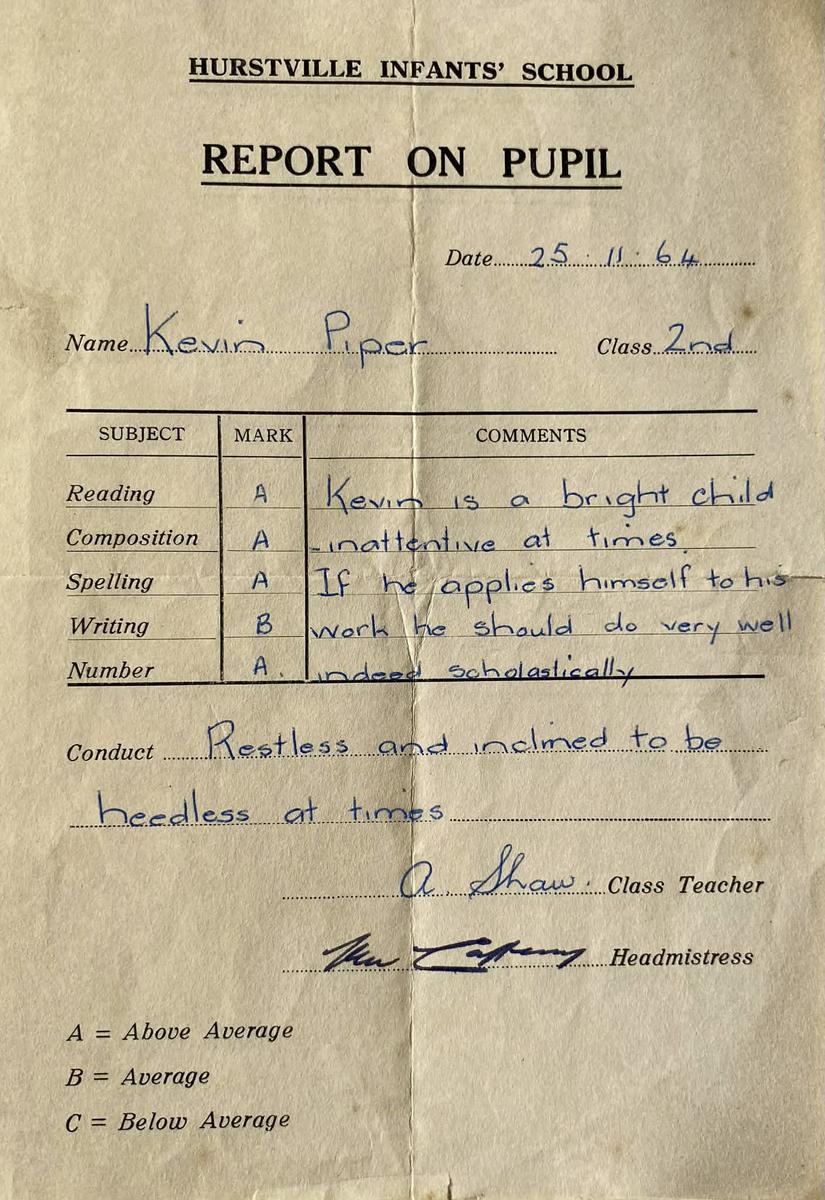 HURSTVILLE INFANTS' SCHOOL
REPORT ON PUPIL
Date 25 . 11 . 64
Name Kevin Piper Class 2nd
SUBJECT MARK COMMENTS
Reading A Kevin is a bright child
Composition A - inattentive at times.
Spelling A If he applies himself to his
Writing B work he should do very well
Number A. indeed scholastically
Conduct Restless and inclined to be
heedless at times
A. Shaw. Class Teacher
Headmistress
A = Above Average
B = Average
C = Below Average